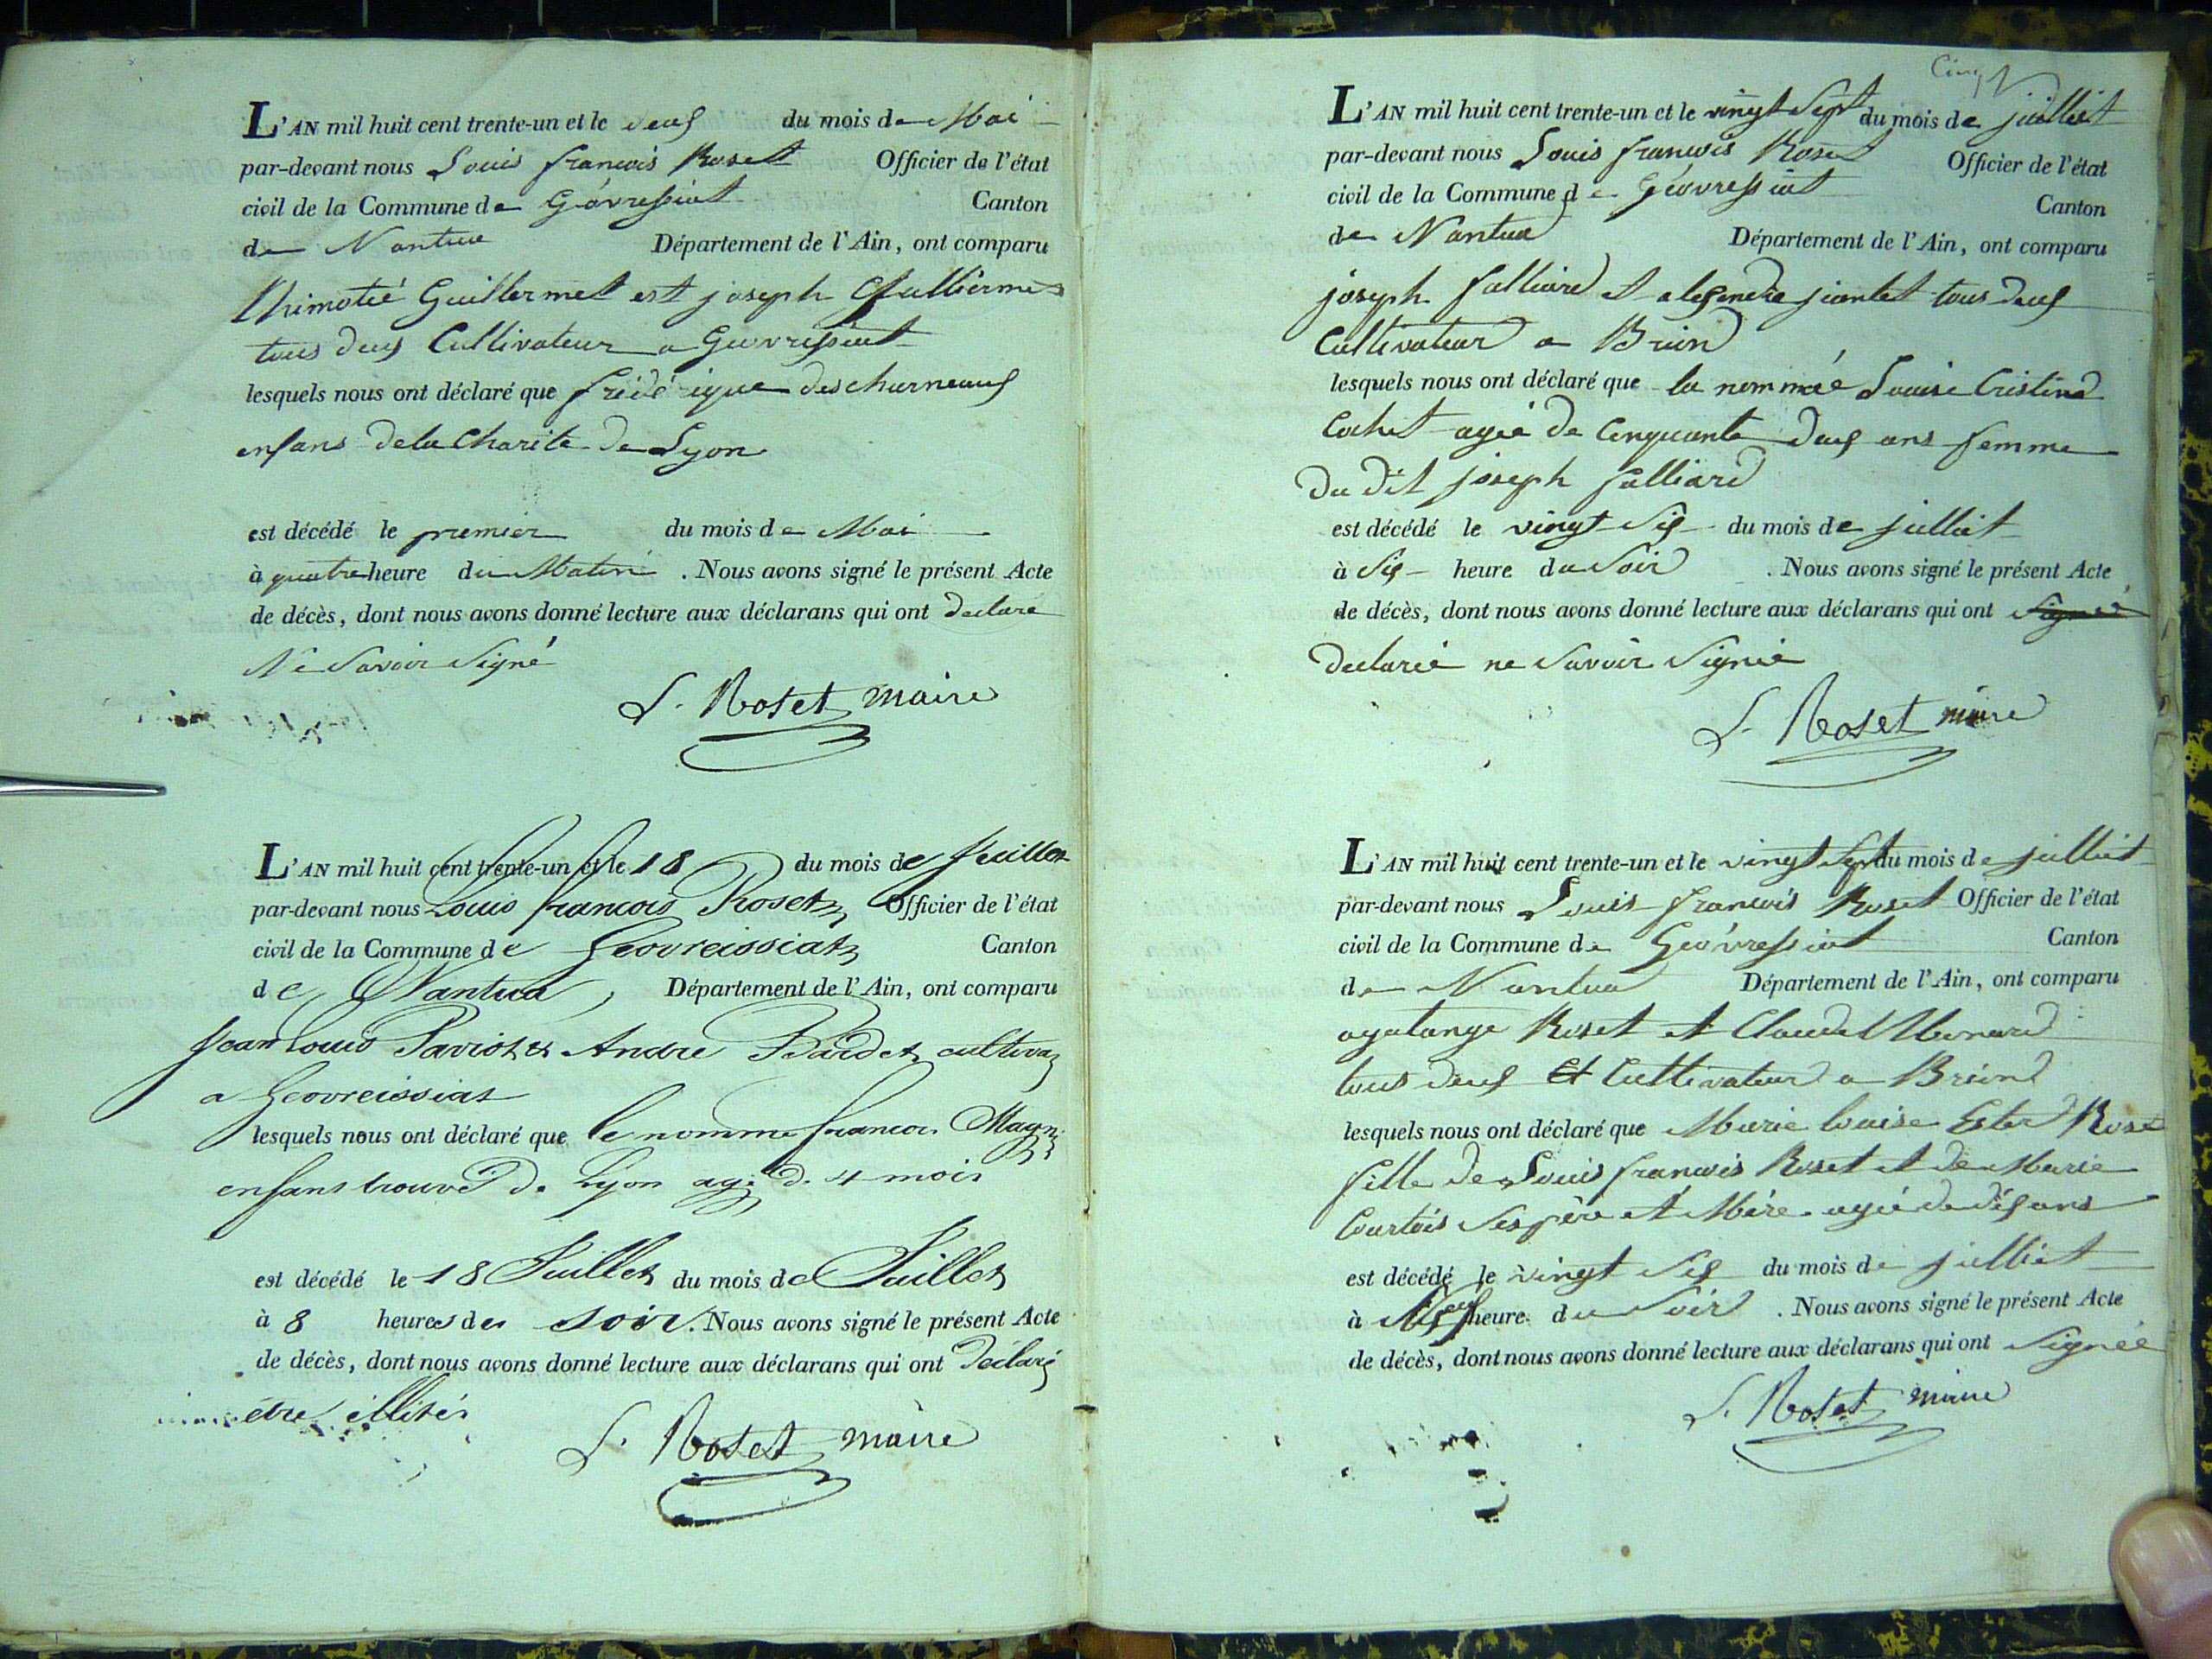 L'AN mil huit cent trente-un et le deuf du mois de Mai
par-devant nous Louis francois Roset Officier de l'état
civil de la Commune de Géovressiat Canton
de Nantua Département de l'Ain, ont comparu
Thimotié Guillermet est joseph
tous deuf Cultivateur a Geovressiat
lesquels nous ont déclaré que frédérique descharneauf
enfans dela Charite de Lyon
est décédé le premier du mois de Mai
à quatre heure du Matin . Nous avons signé le présent Acte
de décès, dont nous avons donné lecture aux déclarans qui ont declare
Ne Savoir Signé
L. Roset maire
L'AN mil huit cent trente-un et le 18 du mois de Juillet
par-devant nous Louis francois Roset Officier de l'état
civil de la Commune de Geovreissiat Canton
de Nantua, Département de l'Ain, ont comparu
Jean Louis Paviot et André Bardet cultiva
a Geovreissiat
lesquels nous ont déclaré que le nomme francois Magn
enfans trouvé de Lyon agé de 4 mois
est décédé le 18 Juillet du mois de Juillet
à 8 heures des soir. Nous avons signé le présent Acte
de décès, dont nous avons donné lecture aux déclarans qui ont déclaré
etre illités
L. Roset maire
Cinq
L'AN mil huit cent trente-un et le vingt Sept du mois de juilliet
par-devant nous Louis francois Roset Officier de l'état
civil de la Commune de Géovressiat Canton
de Nantua Département de l'Ain, ont comparu
joseph falliard et alesendre jantet tous deuf
Cultivateur a Brion
lesquels nous ont déclaré que la nommée Louise Cristine
Cochet agée de Cinquante deuf ans femme
du dit joseph falliard
est décédé le vingt Sif du mois de julliet
à Sif heure du Soir . Nous avons signé le présent Acte
de décès, dont nous avons donné lecture aux déclarans qui ont Signée
declarée ne Savoir Signée
L. Roset maire
L'AN mil huit cent trente-un et le vingt Sept du mois de julliet
par-devant nous Louis francois Roset Officier de l'état
civil de la Commune de Geovressiat Canton
de Nantua Département de l'Ain, ont comparu
agatange Roset et Claude Monard
tous deuf Et Cultivateur a Brion
lesquels nous ont déclaré que Marie louise Ester Rose
fille de Louis francois Roset et de Marie
Courtois Ses père et Mère agée de dif ans
est décédé le vingt Sif du mois de julliet
à Neuf heure du Soir . Nous avons signé le présent Acte
de décès, dont nous avons donné lecture aux déclarans qui ont Signée
L. Roset maire